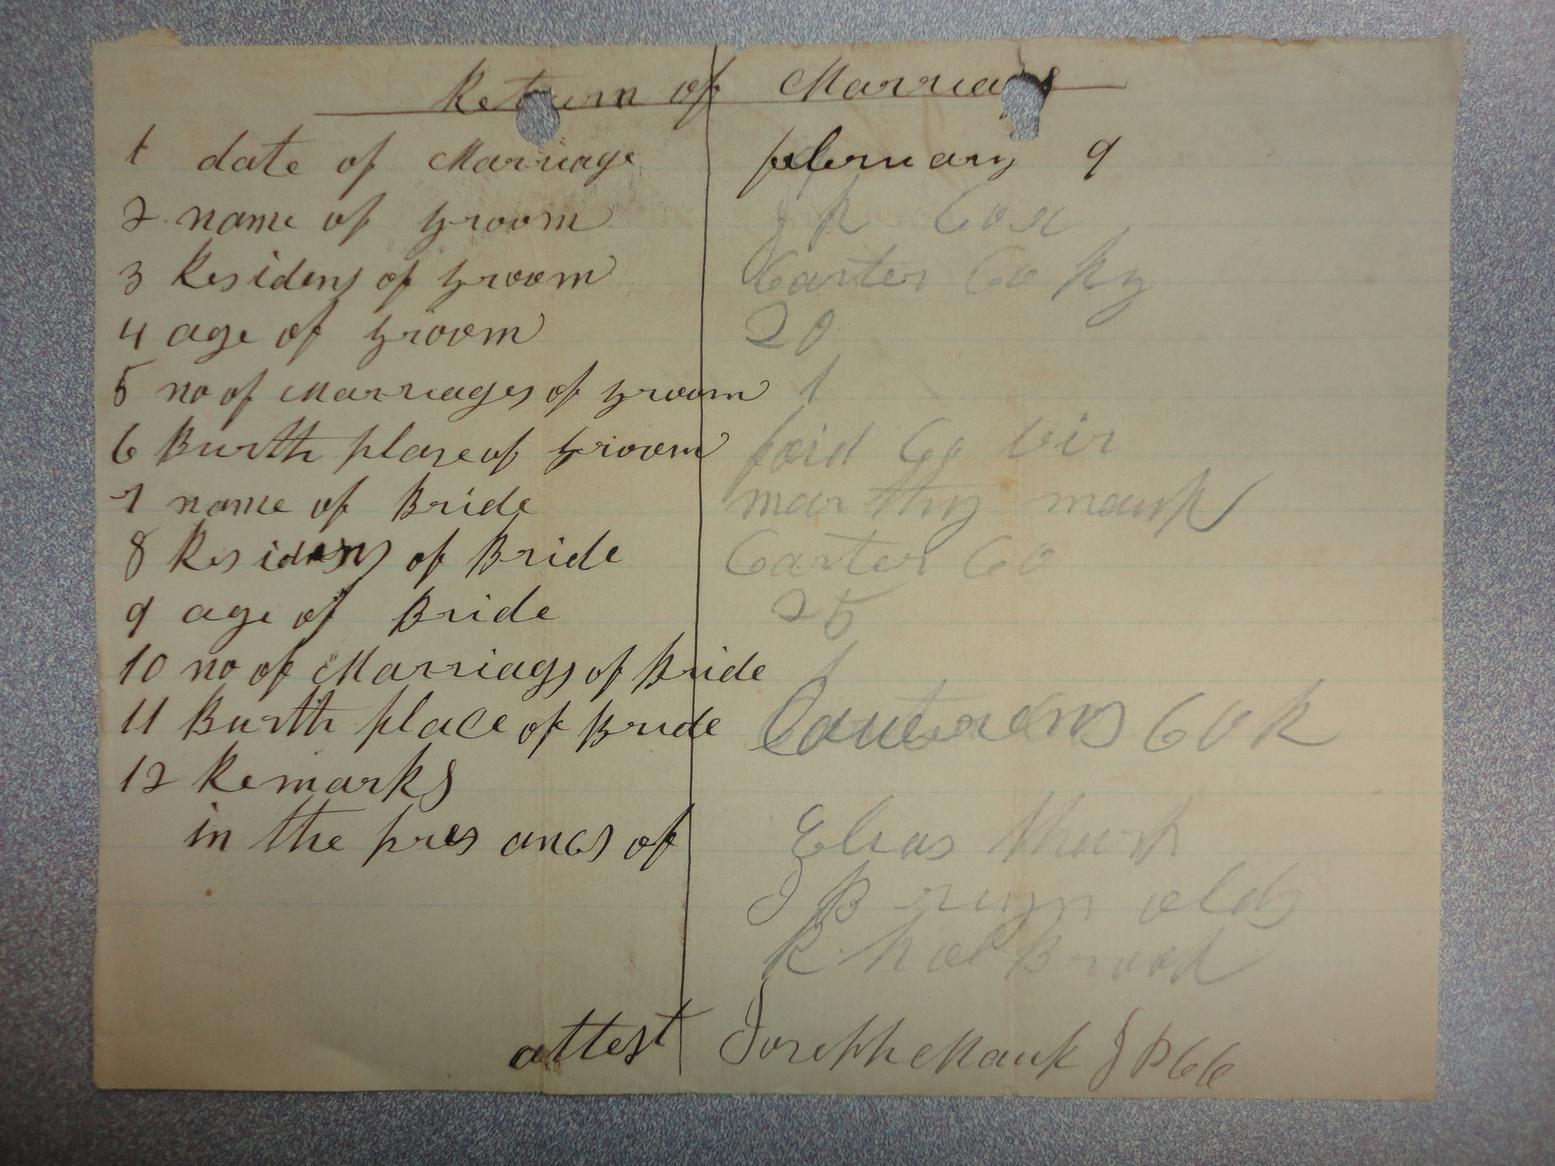 Return of Marriags
1 date of Marriage february 9
2 name of groom J R Cox
3 Residens of groom Carter Co Ky
4 age of groom 20
5 no of Marriages of groom 1
6 Burth plase of groom foid Co vir
7 name of Bride marthy mauk
8 Residens of Bride Carter Co
9 age of Bride 25
10 no of Marriags of Bride 1
11 Burth place of Bride Co K
12 Remarks
in the pres ancs of Elias
J B reignolds
R holBrook
attest Joseph Mauk J P C C